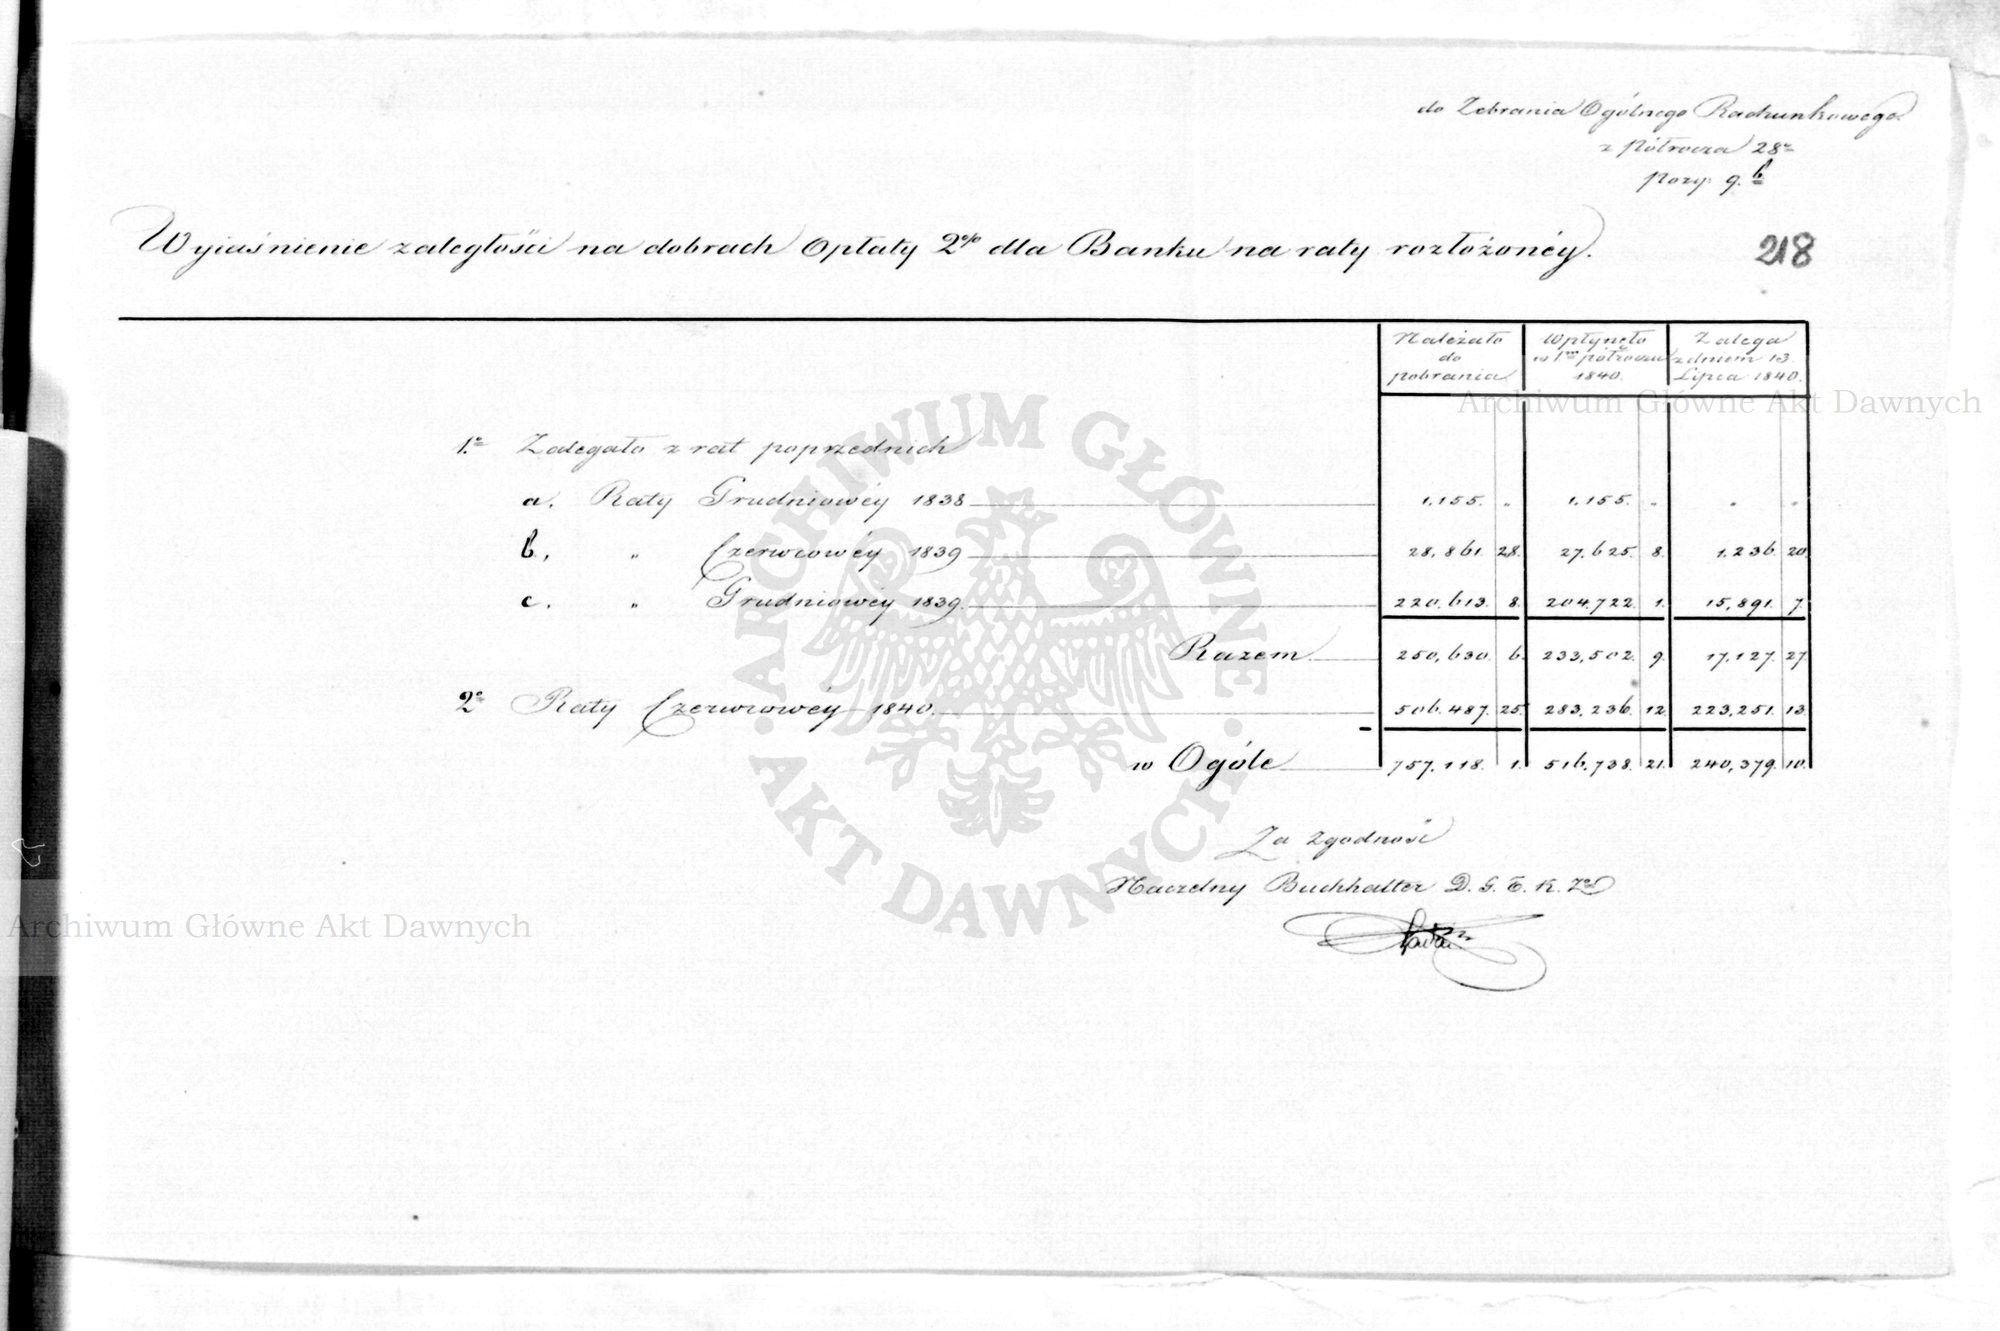 do Zebrania Ogólnego Rachunkowego
z Półrocza 28º
pozy. 9. b
Wyjaśnienie zaległości na dobrach Opłaty 2% dla Banku na raty rozłożonéy.
218
Należało do pobrania | Wpłynęło w 1m półroczu 1840. | Zalega z dniem 13. Lipca 1840.
1º Zalegało z rat poprzednich
a. Raty Grudniowéy 1838 1,155. „ 1,155. „ „ „
b. „ Czerwcowéy 1839 28,861. 28. 27,625. 8. 1,236. 20.
c. „ Grudniowéy 1839. 220,613. 8. 204,722. 1. 15,891. 7.
Razem 250,630. 6. 233,502. 9. 17,127. 27.
2º Raty Czerwcowéy 1840. 506,487. 25. 283,236. 12. 223,251. 13.
w Ogóle 757,118. 1. 516,738. 21. 240,379. 10.
Za zgodność
Naczelny Buchhalter D. G. T. K. Zgo
Archiwum Główne Akt Dawnych
ARCHIWUM GŁÓWNE · AKT DAWNYCH ·
Archiwum Główne Akt Dawnych